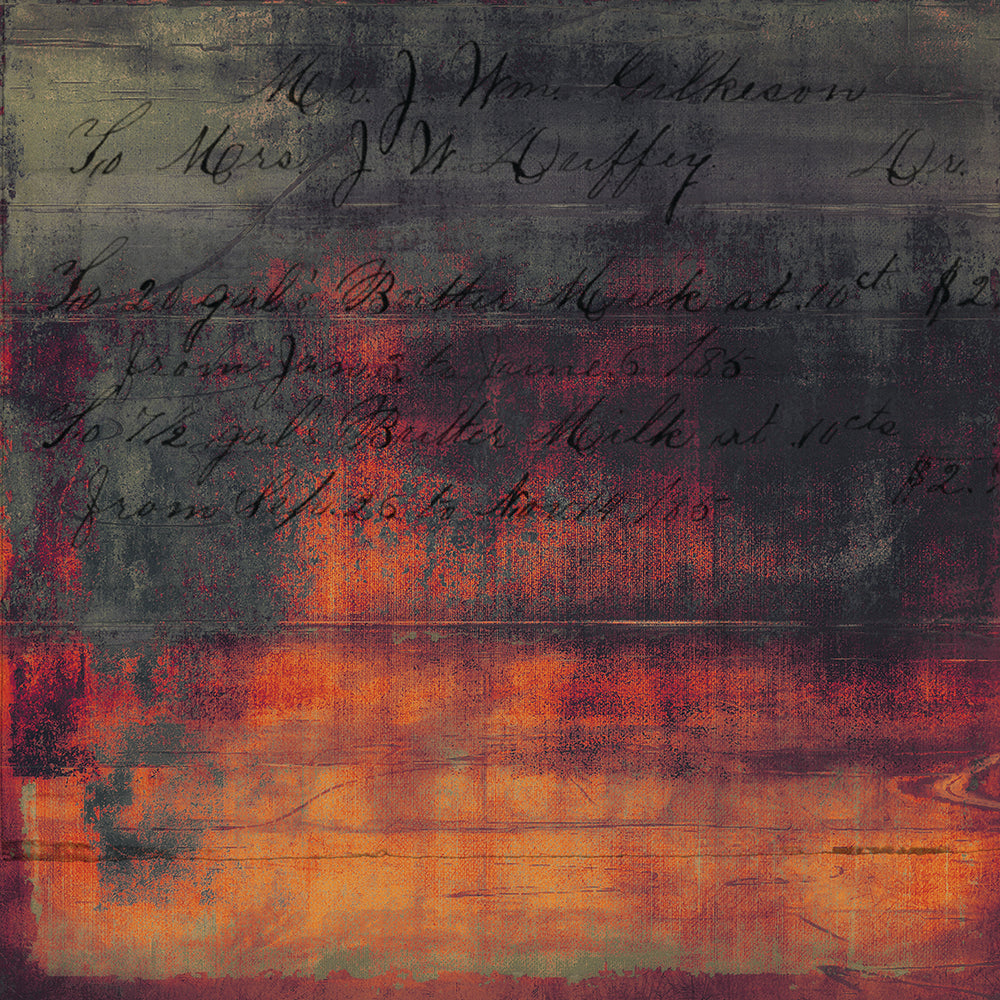 Mr. J. Wm. Gilkeson
To Mrs. J W Duffey. Dr.
To 20 gal's Butter Milk at .10ct $2
from Jan 3 to June 6 /85
To 7½ gal's Butter Milk at .10cts
$2.
from Sep. 26 to Nov 14 /85